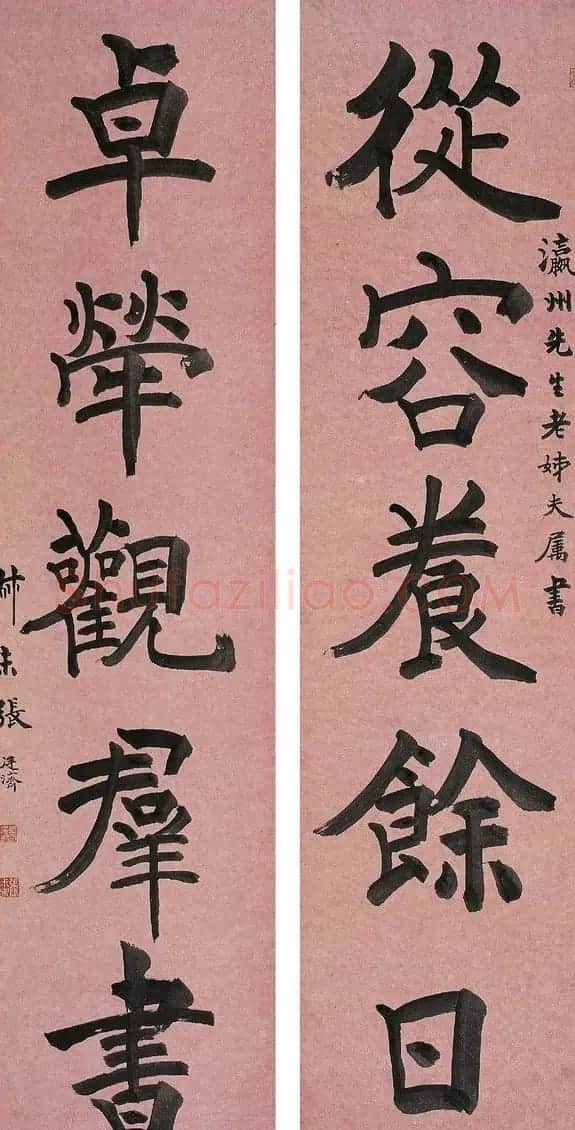 瀛州先生老姊夫属書
從容養餘日
卓犖觀羣書
叔未張廷濟
shufaziliao.COM